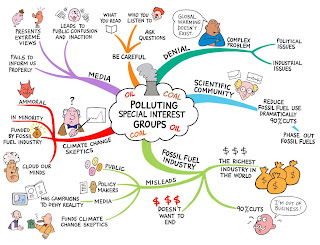 POLLUTING
SPECIAL INTEREST
GROUPS
OIL
COAL
COAL
OIL
DENIAL
GLOBAL
WARMING
DOESN'T
EXIST
COMPLEX
PROBLEM
POLITICAL
ISSUES
INDUSTRIAL
ISSUES
SCIENTIFIC
COMMUNITY
REDUCE
FOSSIL FUEL USE
DRAMATICALLY
90% CUTS
PHASE OUT
FOSSIL FUELS
FOSSIL FUEL
INDUSTRY
THE RICHEST
INDUSTRY IN
THE WORLD
$ $ $
DOESN'T
WANT
TO END
90% CUTS
I'M OUT OF
BUSINESS!
MISLEADS
PUBLIC
POLICY
MAKERS
MEDIA
FUNDS CLIMATE CHANGE
SKEPTICS
CLIMATE CHANGE
SKEPTICS
AMMORAL
IN MINORITY
FUNDED BY
FOSSIL FUEL
INDUSTRY
CLOUD OUR
MINDS
HAS CAMPAIGNS
TO DENY REALITY
MEDIA
FAILS TO
INFORM US
PROPERLY
PRESENTS
EXTREME
VIEWS
LEADS
TO PUBLIC CONFUSION
AND INACTION
BE CAREFUL
WHAT
YOU READ
WHO YOU
LISTEN TO
ASK
QUESTIONS